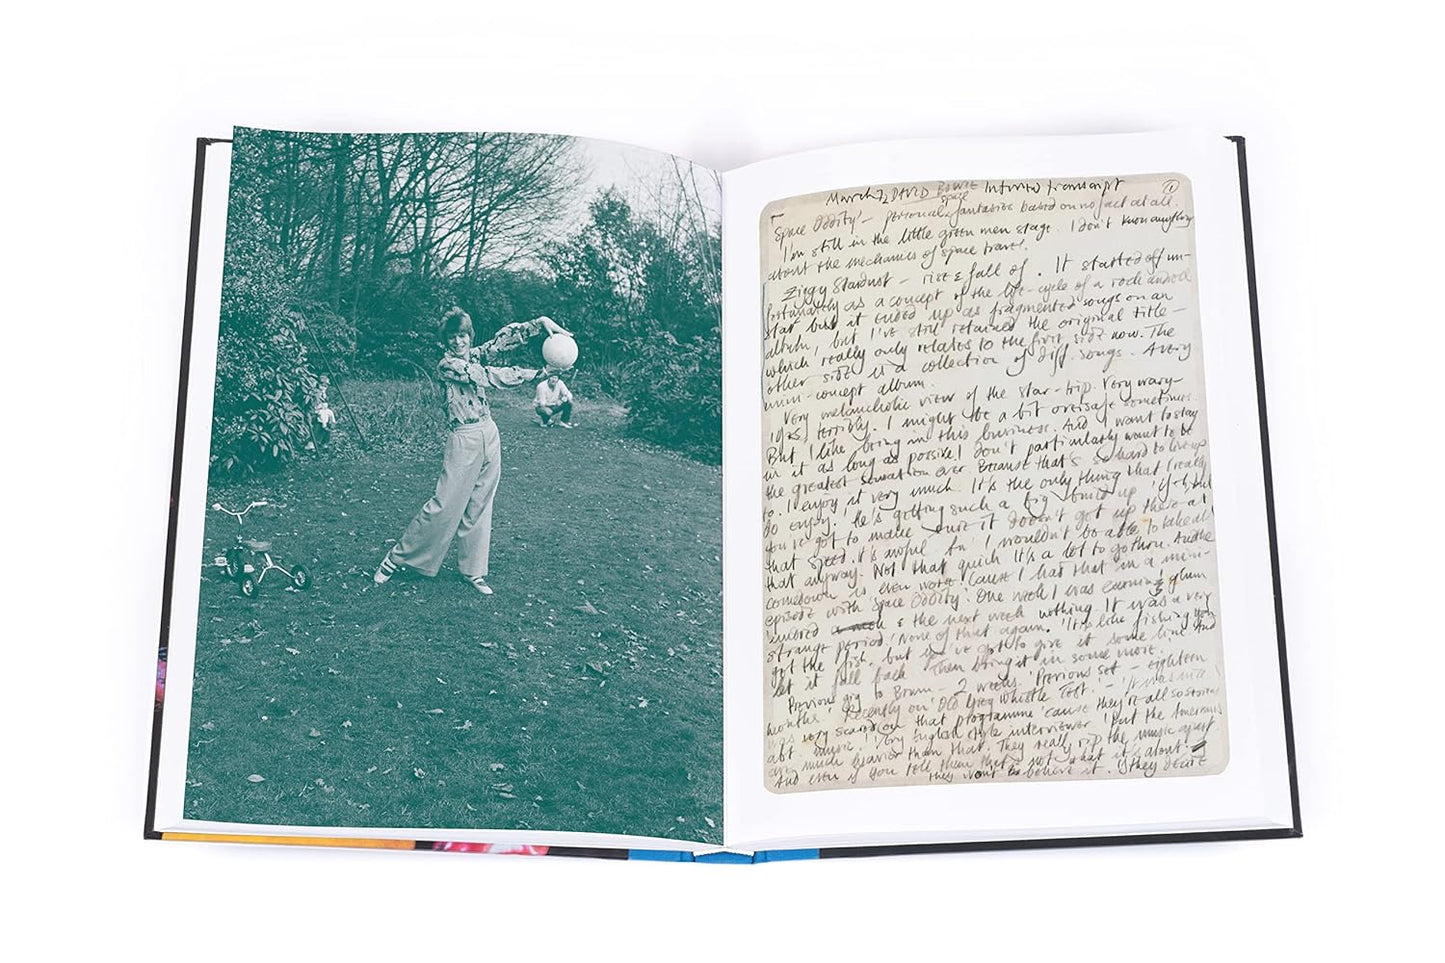 March 72 DAVID BOWIE Interview transcript ①
'Space Oddity' – personal space fantasize based on no fact at all.
I'm still in the little green men stage. I don't know anything
about the mechanics of space travel.
Ziggy Stardust – rise & fall of. It started off un-
fortunately as a concept of the life-cycle of a rock and roll
star but it ended up as fragmented songs on an
album, but I've still retained the original title –
which really only relates to the first side now. The
other side is a collection of diff. songs. A very
mini-concept album.
Very melancholic view of the star-trip. Very wary –
terribly. I might be a bit oversafe sometimes.
But I like being in this business. And I want to stay
in it as long as possible. I don't particularly want to be
the greatest sensation ever. Because that's so hard to live up
to. I enjoy it very much. It's the only thing that I really
do enjoy. He's getting such a big build up 'if -
you've got to make sure it doesn't get up there at
that speed. It's awful I wouldn't be able to take all
that anyway. Not that quick. It's a lot to go thru. And the
comedown is even worse 'cause I had that in a mini-
episode with 'Space Oddity'. One week I was earning
hundred & the next week nothing. It was a very
strange period. None of that again. 'It's like fishing
got the fish, but we've got to give it some line and
let it fall back. Then bring it in some more.
Previous gig to Bowie – 2 weeks. Previous set – eighteen
months. Recently on 'Old Grey Whistle Test' – 'It was nice I
was very scared on that programme 'cause they're all so
abt music. Very English style interviewer 'But the Americans
are much heavier than that. They really rip the music apart
And even if you tell them that's not what it's about.
they won't believe it. If they